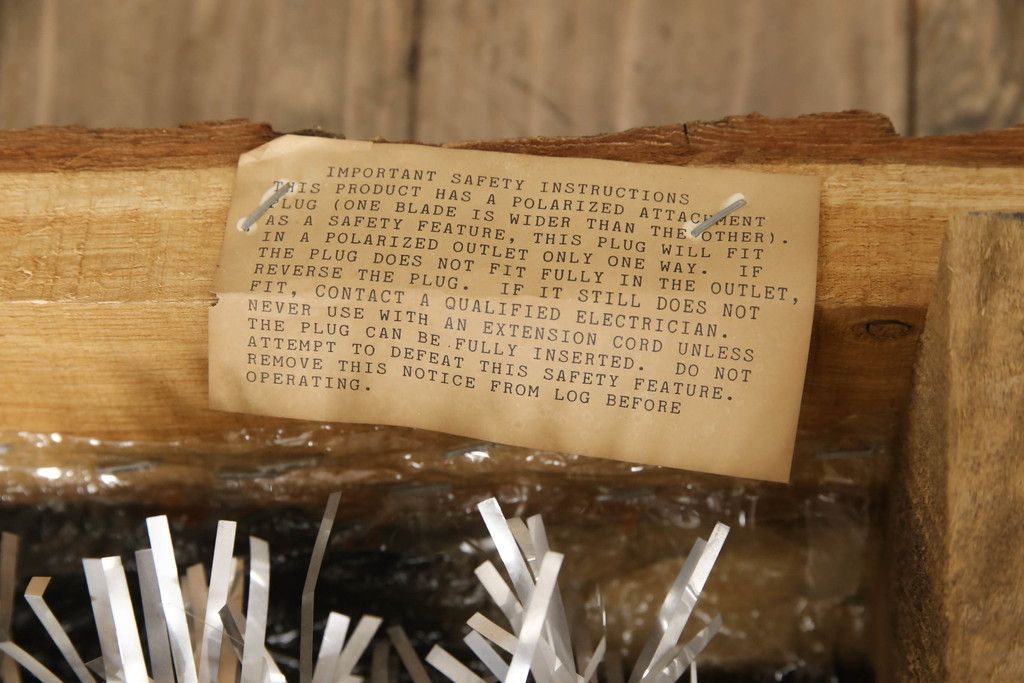 IMPORTANT SAFETY INSTRUCTIONS
THIS PRODUCT HAS A POLARIZED ATTACHMENT
PLUG (ONE BLADE IS WIDER THAN THE OTHER).
AS A SAFETY FEATURE, THIS PLUG WILL FIT
IN A POLARIZED OUTLET ONLY ONE WAY. IF
THE PLUG DOES NOT FIT FULLY IN THE OUTLET,
REVERSE THE PLUG. IF IT STILL DOES NOT
FIT, CONTACT A QUALIFIED ELECTRICIAN.
NEVER USE WITH AN EXTENSION CORD UNLESS
THE PLUG CAN BE FULLY INSERTED. DO NOT
ATTEMPT TO DEFEAT THIS SAFETY FEATURE.
REMOVE THIS NOTICE FROM LOG BEFORE
OPERATING.